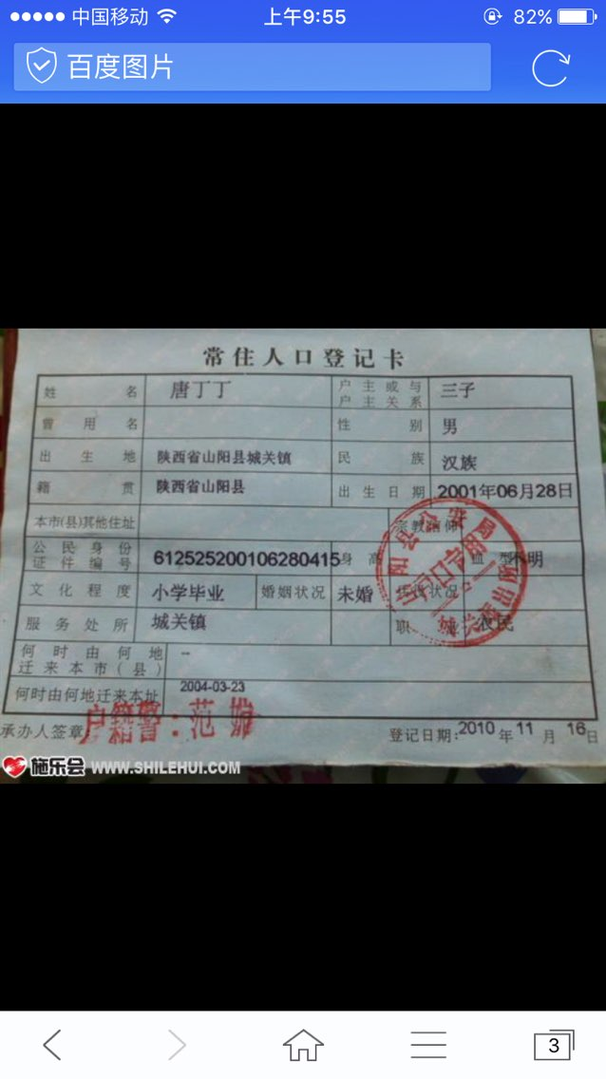 中国移动 上午9:55 82%
百度图片
常住人口登记卡
姓名 唐丁丁 户主或与户主关系 三子
曾用名 性别 男
出生地 陕西省山阳县城关镇 民族 汉族
籍贯 陕西省山阳县 出生日期 2001年06月28日
本市(县)其他住址 宗教信仰
公民身份证件编号 612525200106280415 身高 血型 不明
文化程度 小学毕业 婚姻状况 未婚 兵役状况
服务处所 城关镇 职业 农民
何时由何地迁来本市(县) --
何时由何地迁来本址 2004-03-23
承办人签章 户籍警:范
登记日期:2010年11月16日
施乐会 WWW.SHILEHUI.COM
3